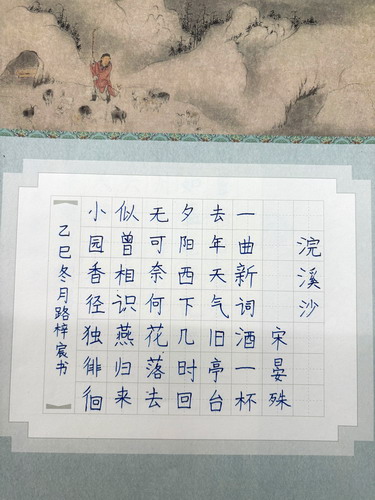 浣溪沙
宋晏殊
一曲新词酒一杯
去年天气旧亭台
夕阳西下几时回
无可奈何花落去
似曾相识燕归来
小园香径独徘徊
乙巳冬月路梓宸书